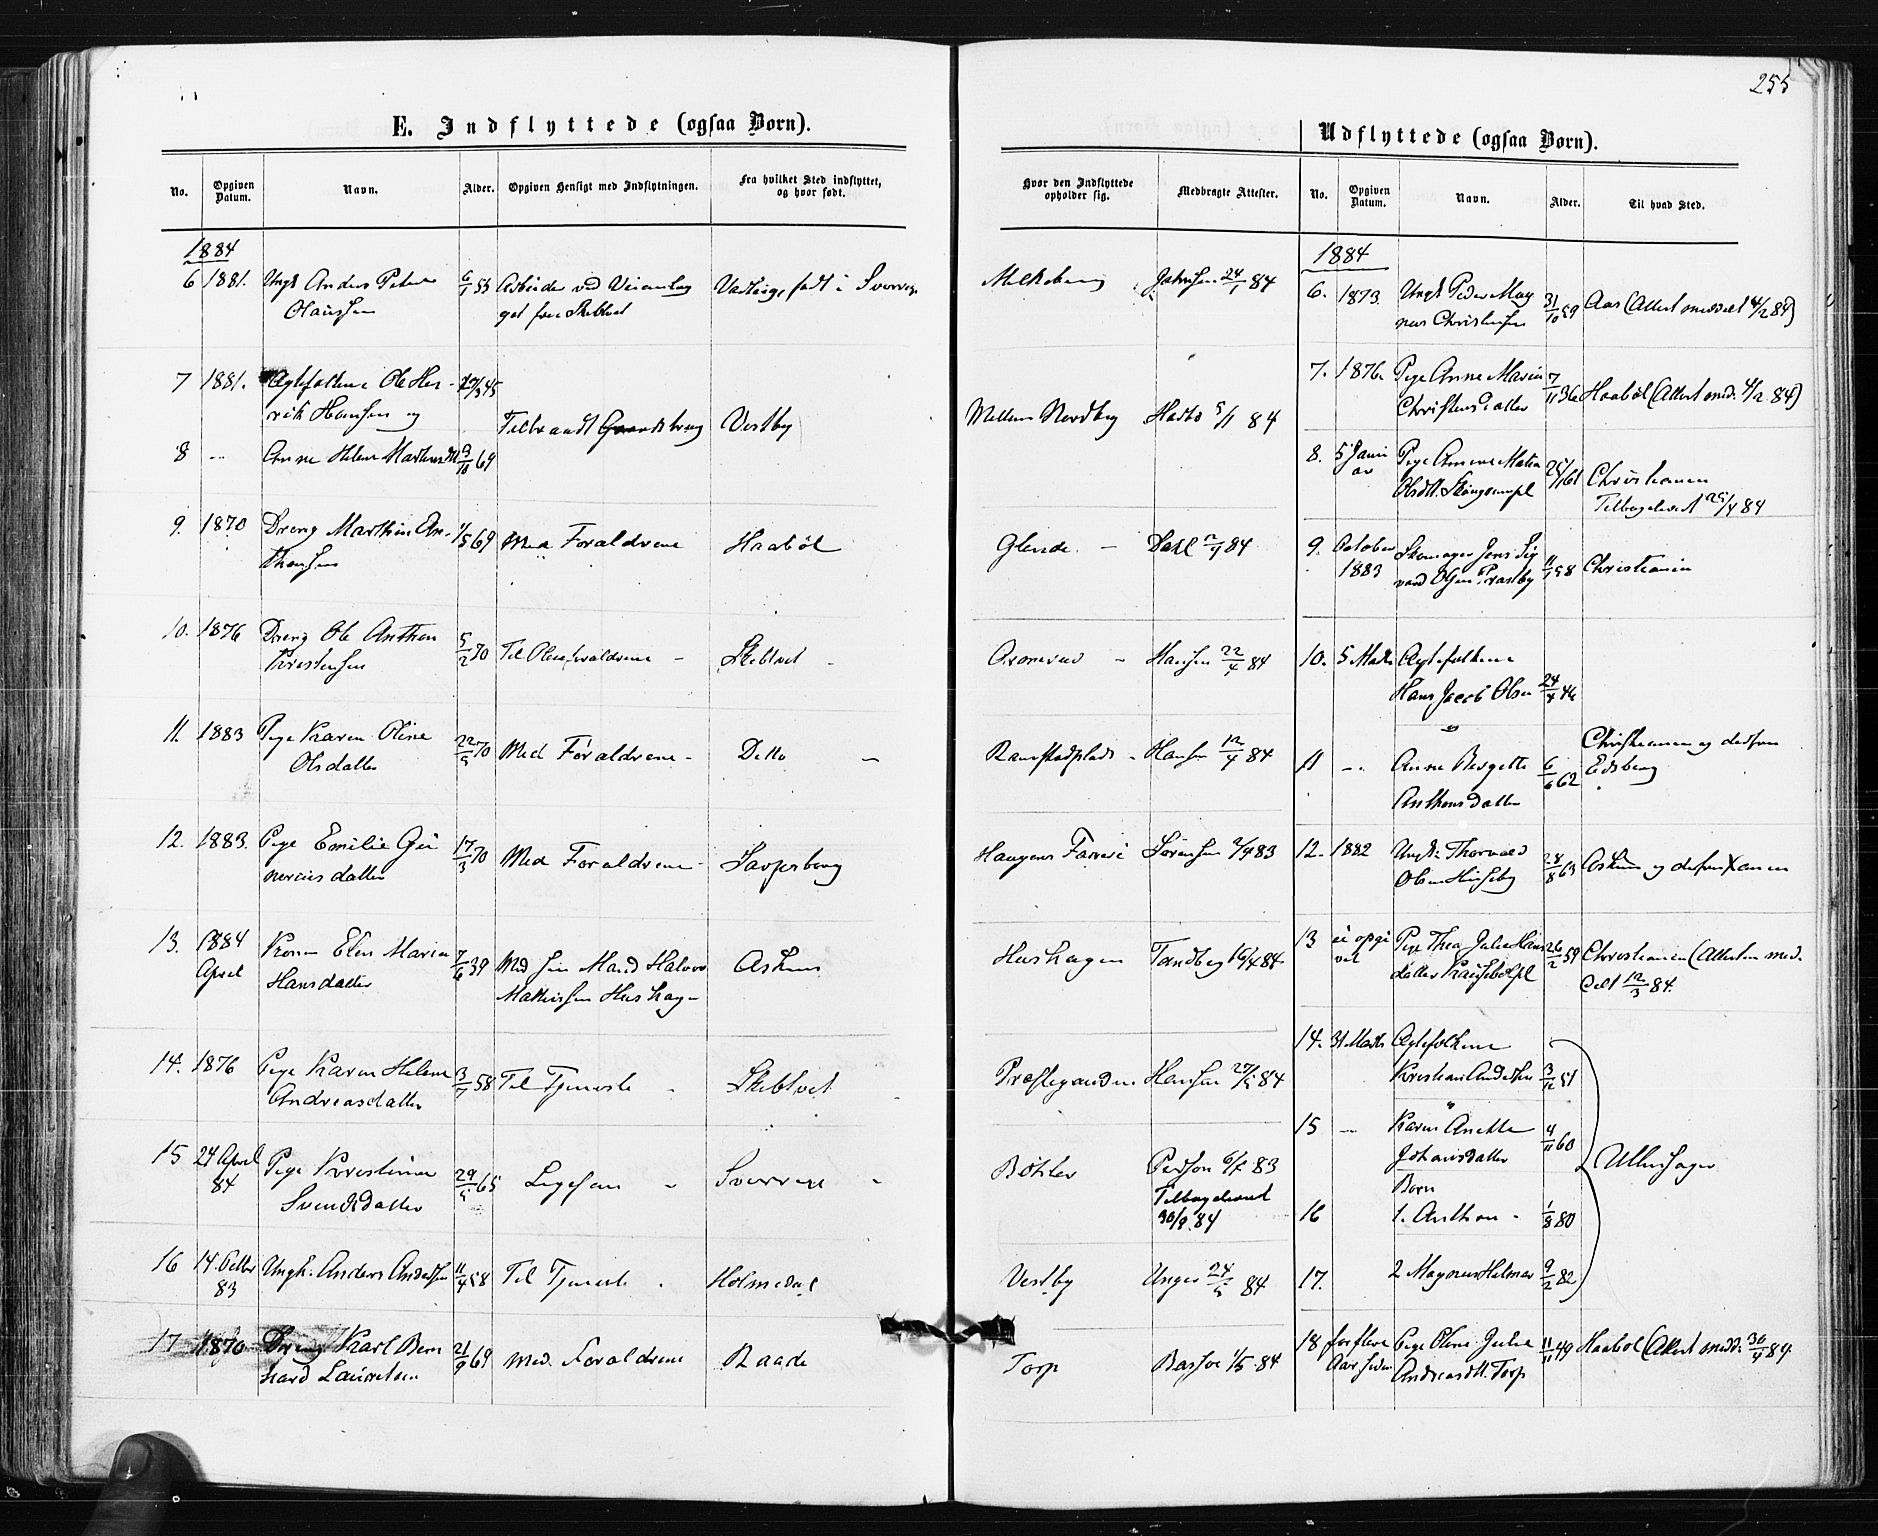 255
E. Indflyttede (ogsaa Børn).
No. Opgiven Datum. Navn. Alder. Opgiven Hensigt med Indflytningen. Fra hvilket Sted indflyttet, og hvor født. Hvor den Indflyttede opholder sig. Medbragte Attester.
1884
6 1881. Ungk Anders Peter 6/1 55 Arbeider ved
Olaussen fra Skibtvet
født i Sverrige 24/1 84
7 1881. Ægtefolkene Ole Hen-
rik Hansen og
Vestby Nordby 5/1 84
8 -- Anne Helene 3/10 69
9. 1870 Dreng Marthin An- 1/5 69 Med Forældrene Haabøl Glende - Dahl 84
thonsen
10. 1876 Dreng Ole Anthon 5/2 70 Til Skibtvet - Hansen 22/4 84
Kristensen
11. 1883 Pige Karen Oline 22/5 70 Med Forældrene - Ditto - Ramstadplads - Hansen 12/4 84
Olsdatter
12. 1883. Pige Emilie Gu 17/3 70 Med Forældrene - Sarpsborg Haugen Sørensen 83
neriusdatter
13. 1884 Kone Elen Maria 7/6 39 Med sin Mand Halvor Askim Hushagen Tandberg 16/4 84
April Hansdatter Mathissen Hushagen
14. 1876 Pige Karen Helene 3/7 58 Til Tjeneste Skibtvet Præstegaarden Hansen 84
Andreasdatter
15 24 April Pige Kristine 29/5 65 Ligesaa Sverrige Bøhler Person 83
84 Svendsdatter Tilbageleveret
30/9 84
16 14. Octbr Ungk. Anders Andersen 11/4 58 Til Tjeneste Holmedal Vestby Unger 24/5 84
83
17 1870 Dreng Karl Bern 21/9 69 Med Forældrene Raade Torp Basson 1/5 84
hard Lauritsen
Udflyttede (ogsaa Børn).
No. Opgiven Datum. Navn. Alder. Til hvad Sted.
1884
6. 1873 Ungk Peder Mag 31/10 59 Aas (Attest meddelt 4/2 84)
nus Christensen
7. 1876. Pige Anne Marie 7/11 36 Haabøl (Attest medd. 4/2 84)
Christensdatter
8. 5 Janu Pige 61 Christiania
ar Olsdtr. Tilbageleveret 25/4 84
9. October Skomager Jens Sig 11/1 58 Christiania
1883 vard Olsen Præstby
10. 5 Marts Ægtefolkene
Hans Jacob Olsen 24/4 46
"
11 -- Anne Bergette 6/6 62 Christiania og derfra
Anthonsdatter Edsberg
12. 1882 Ungk. Thorvald 28/8 63 Askim og derfra
Olsen
13 ei opgi Pige Thea Julie Hans 26/2 59 Christiania (Attesten med.
vet datter delt 12/3 84.
14. 31 Marts Ægtefolkene
Kristian Andersen 3/12 51
"
15 -- Karen Anette 4/11 60
Johansdatter Ullensager
Børn
16 1. Anthon - 1/8 80
17. 2 Magnus Helmer 9/2 82
18 for flere Pige Oline Julie 11/11 49 Haabøl (Attest medd. 30/4 84
Aar siden Andreasdtr. Torp